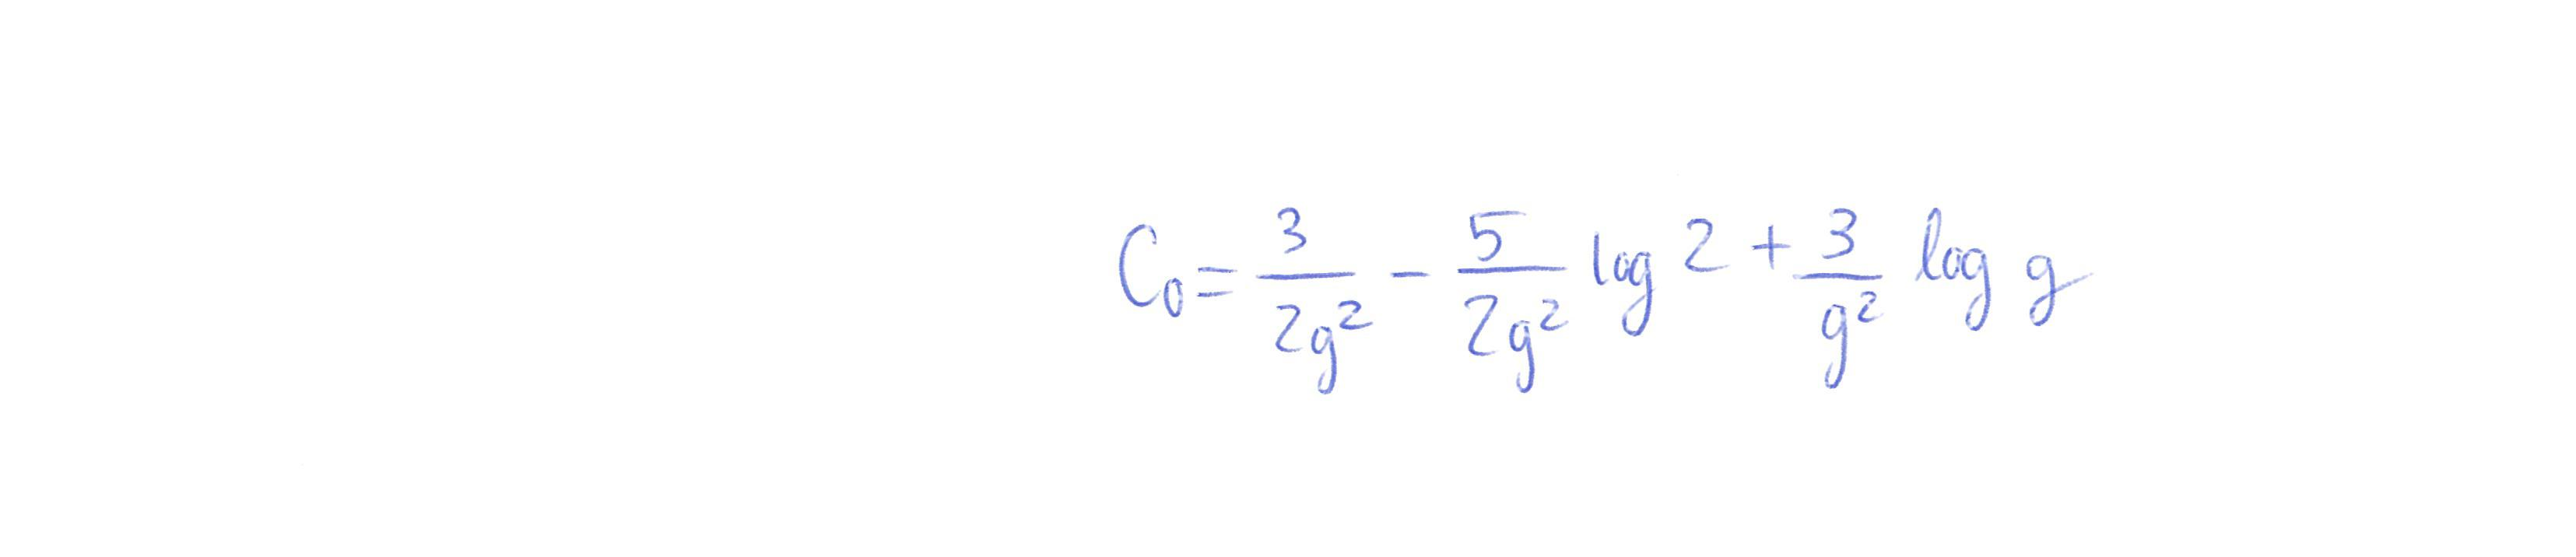 C₀ = \frac{3}{2g^2} - \frac{5}{2g^2} \log 2 + \frac{3}{g^2} \log g